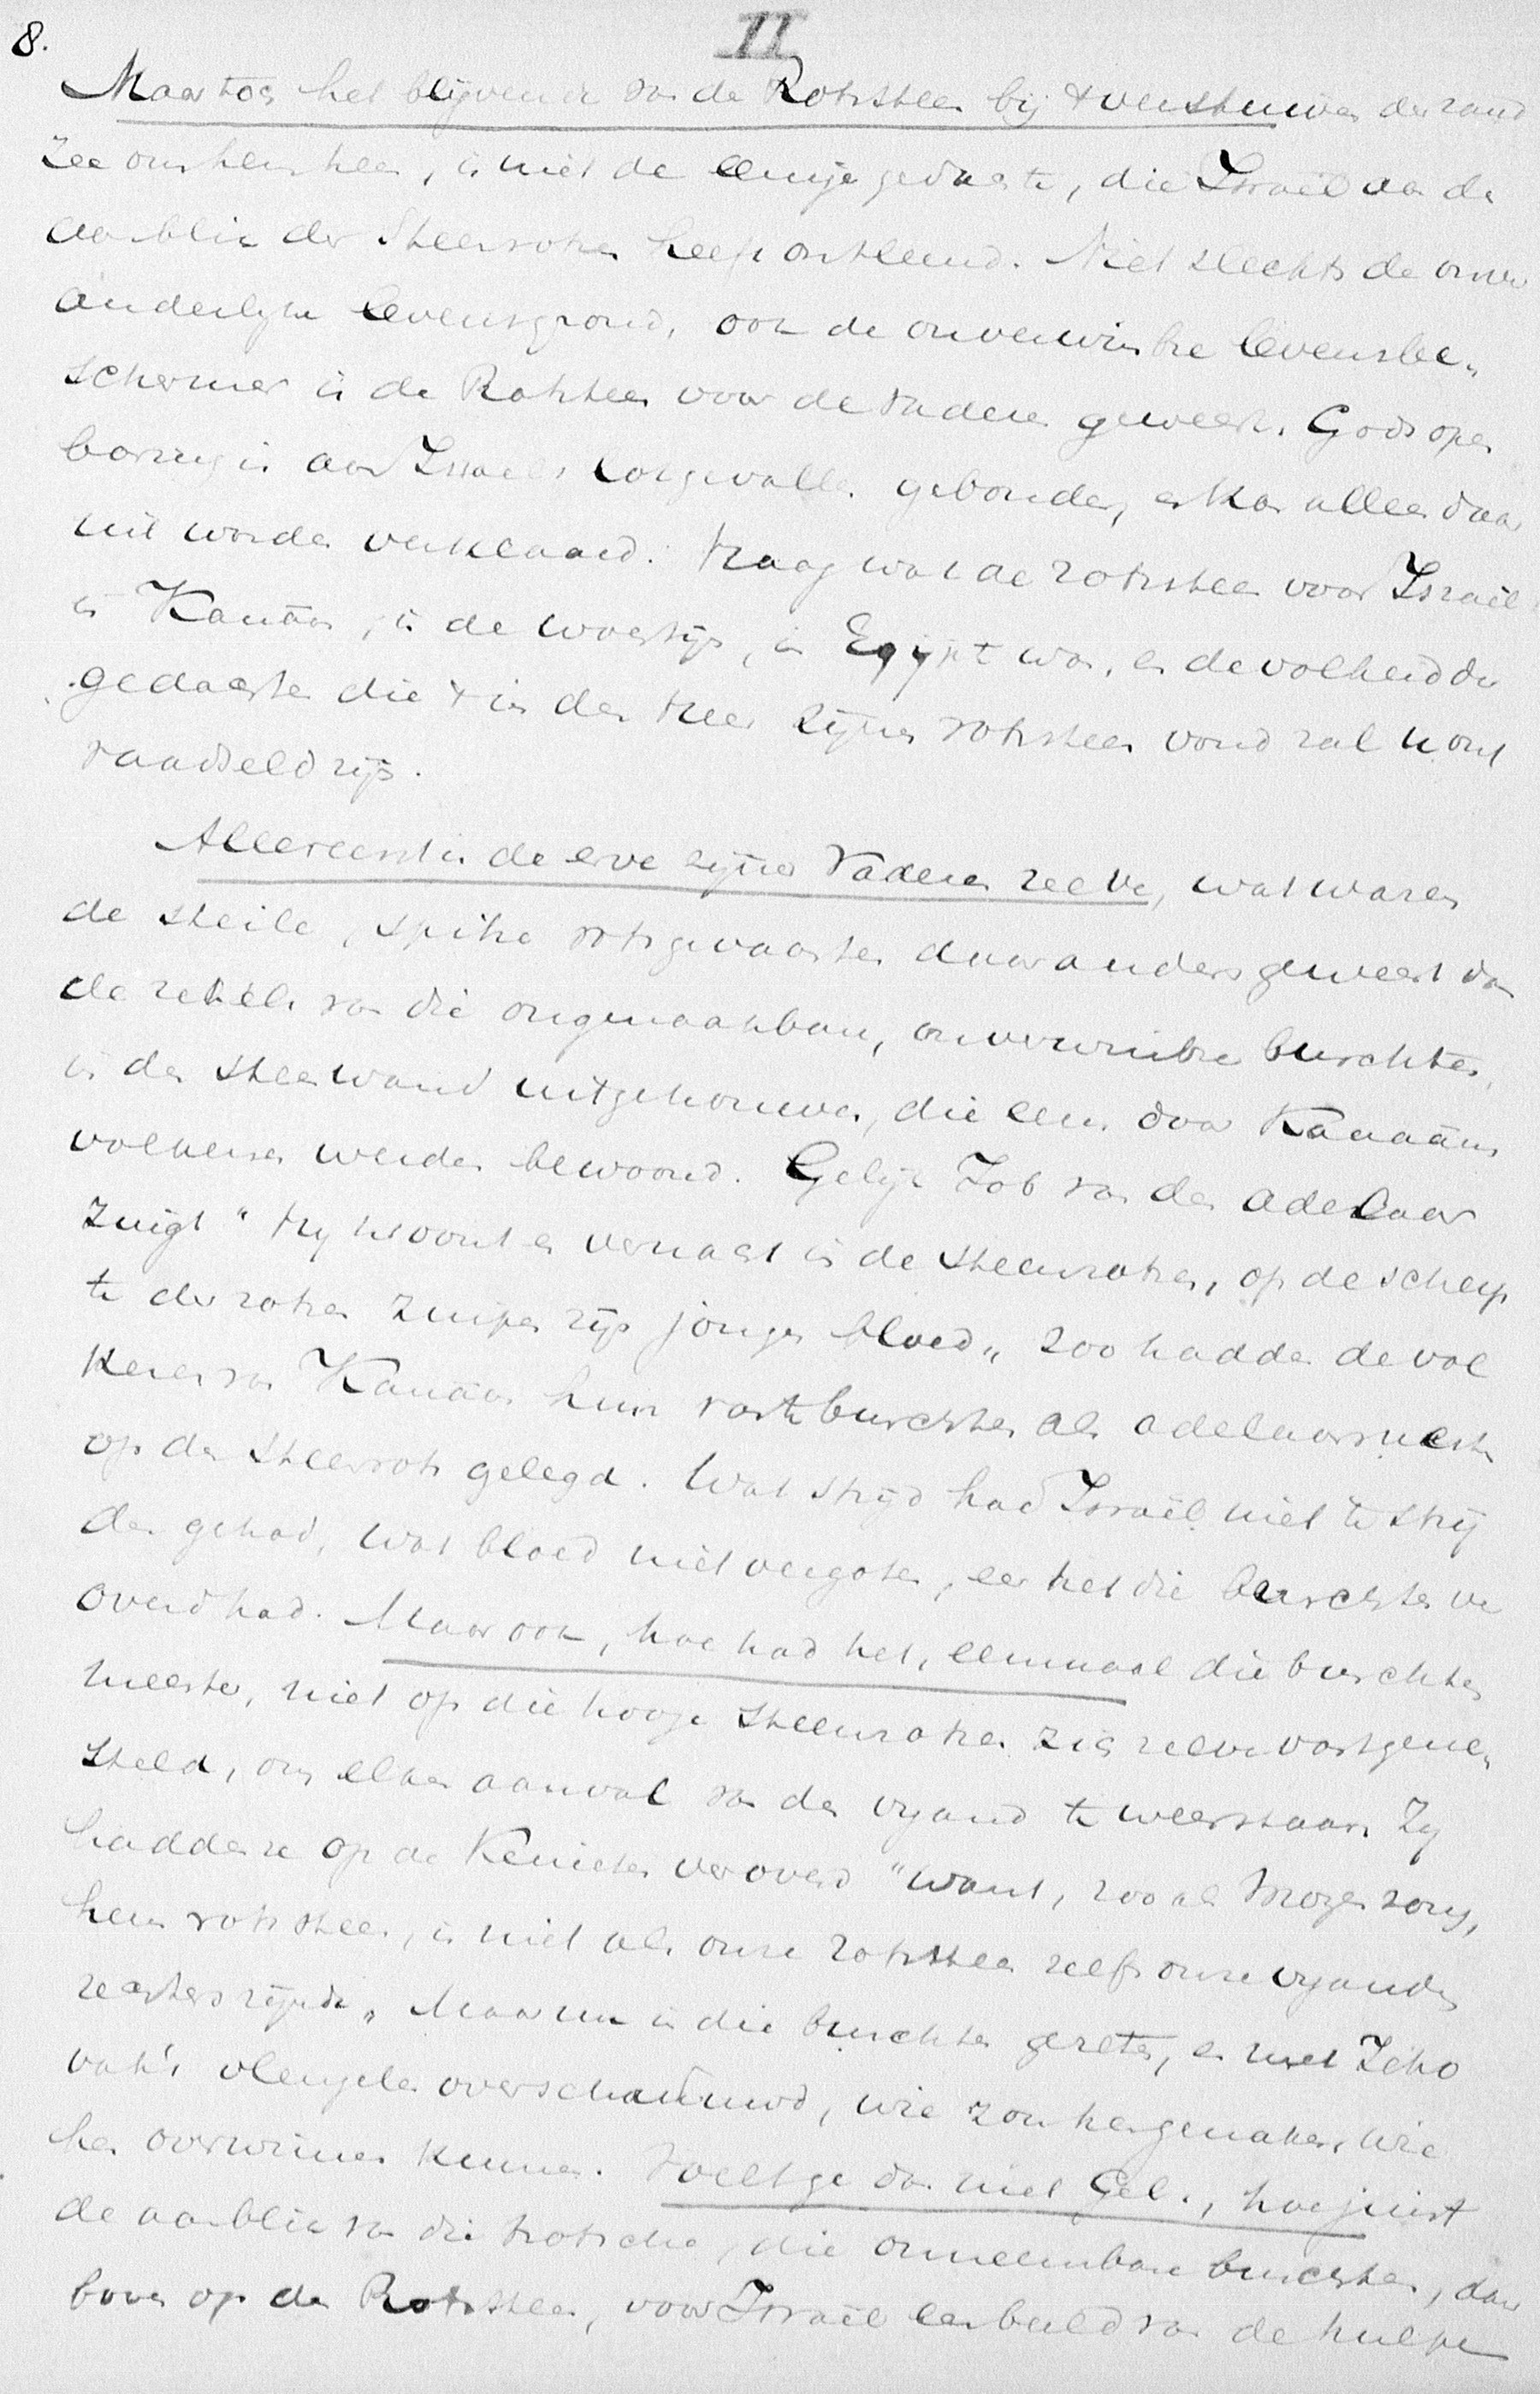 8.
II
Maar toch het blijvende van de Rotssteen bij 't verstuiven der zand
zee om hem heen, is niet de eenige gedachte, die Israël aan de
aanblik der Steenrotsen heeft ontleend. Niet slechts de onver
anderlijke levensgrond, ook de onverwinbre levensbe„
schermer is de Rotssteen voor de vaderen geweest. Gods open
baring is aan Israels lotgevallen gebonden, en kan alleen daar
uit worden verklaard. Vraag wat de rotssteen voor Israël
in Kanäan, in de woestijn, in Egijpt was, en de volheid der
gedachten die 't in den Heer zijnen rotssteen vond zal u ont
raadseld zijn.
Allereerst in de erve zijner Vaderen zelve, wat waren
de steile, spitse rotsgevaarten daar anders geweest dan
de zetels van die ongenaakbare, onverwinbre burchten,
in den steenwand uitgehouwen, die eens door Kanaäns
volkeren werden bewoond. Gelijk Job van den adelaar
zingt "Hij woont en vernacht in de steenrotsen, op de scherp
te der rotsen zuipen zijn jongen bloed„ zoo hadden de vol
keren van Kanäan hun vaste burchten als adelaarsnesten
op den steenrots gelegd. Wat strijd had Israël niet te strij
den gehad, wat bloed niet vergoten, eer het die burchten ver
overd had. Maar ook, hoe had het, eenmaal die burchten
meester, niet op die hooge steenrotsen zich zelve vastgenes
teld, om elken aanval van den vijand te weerstaan. Zij
hadden ze op de Kenieten veroverd "want, zoo als Mozes zong,
hun rotssteen, is niet als onze Rotssteen zelfs onze vijanden
rechters zijnde„ Maar nu in die burchten gezeten, en met Jeho
vah's vleugelen overschaduwd, wie zou hen genaken, wie
hen overwinnen kunnen. Voelt ge dan niet Gel., hoe juist
de aanblik van die trotsche, die onneembare burchten, daar
boven op den Rotssteen, voor Israël een beeld van de hulpe